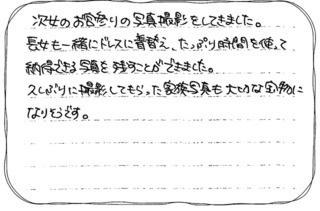 次女のお宮参りの写真撮影をしてきました。
長女も一緒にドレスに着替え、たっぷり時間を使って
納得できる写真を残すことができました。
久しぶりに撮影してもらった家族写真も大切な宝物に
なりそうです。